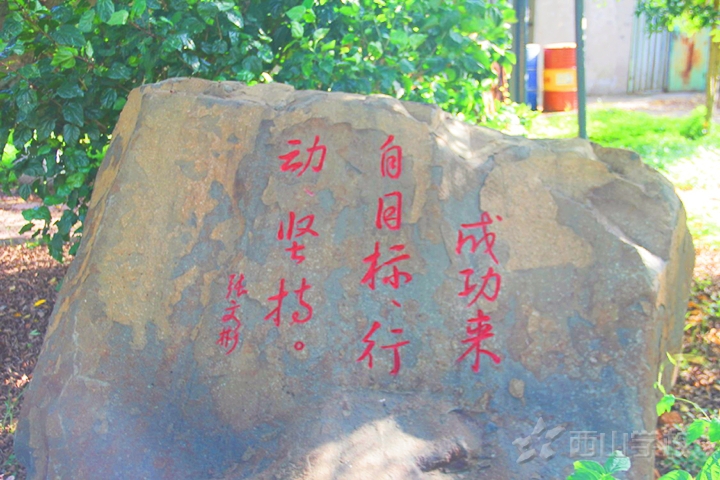 成功来
自目标、行
动、坚持。
张文彤
西山学校